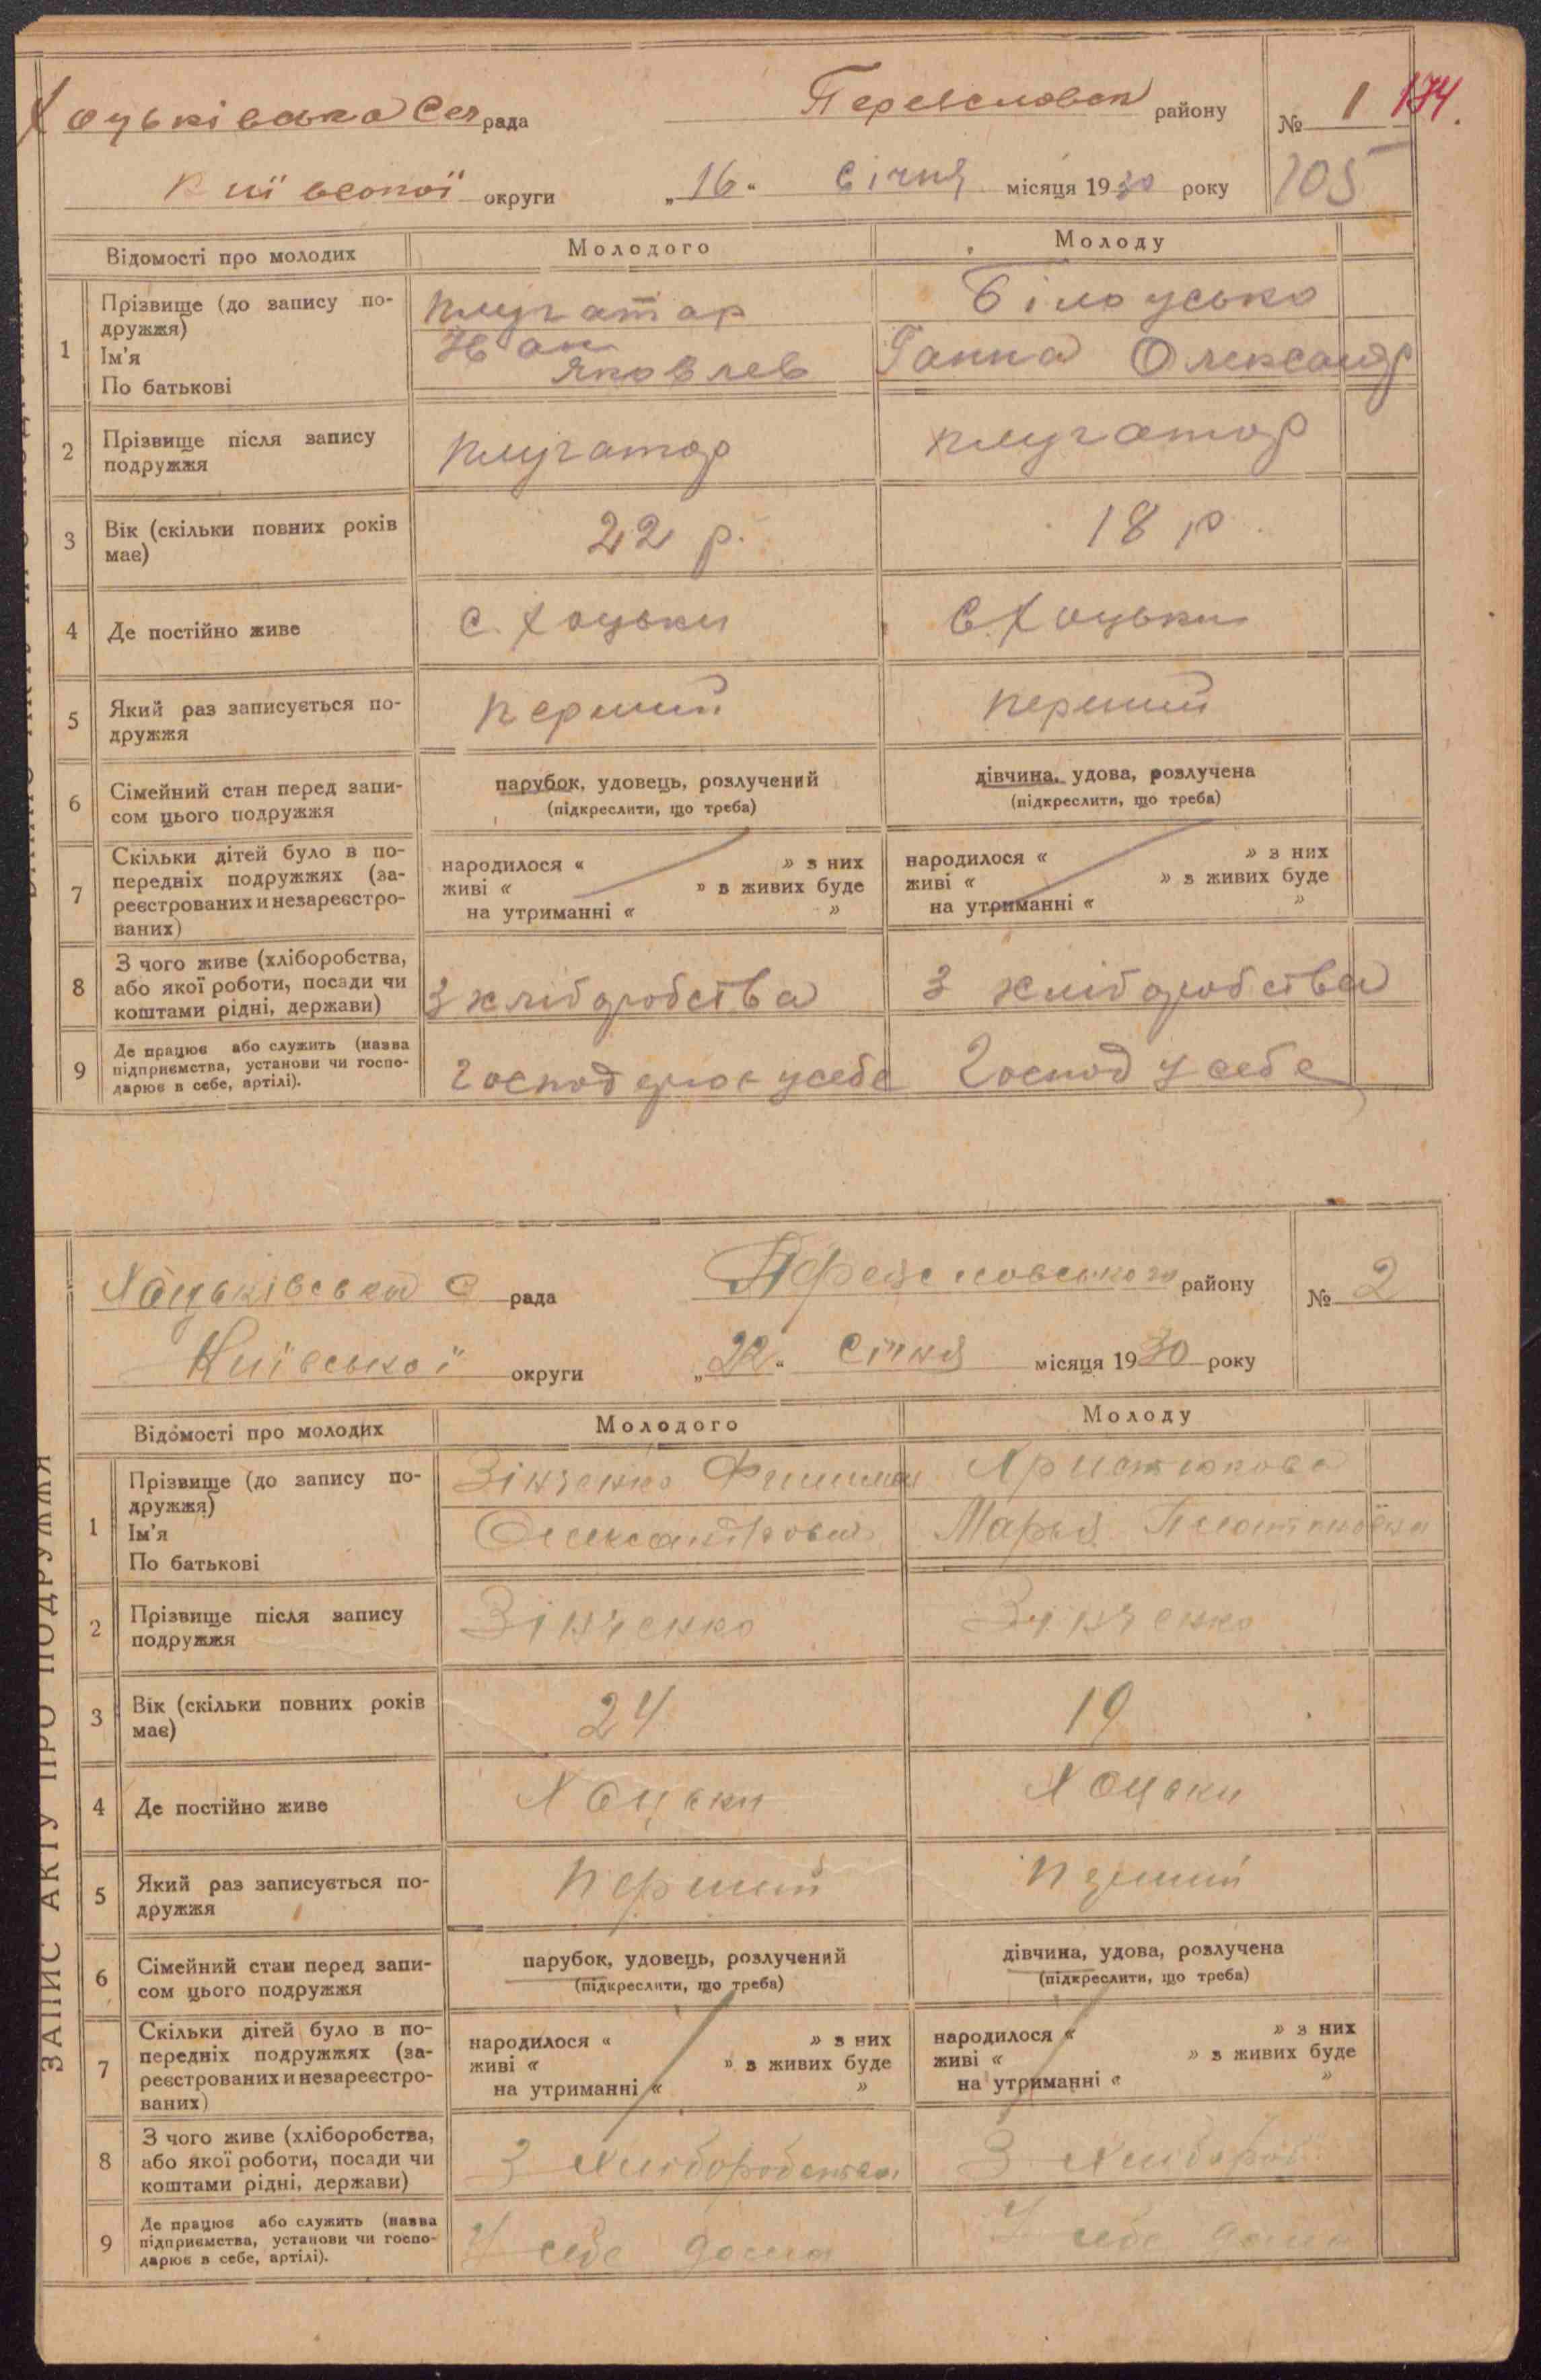 Хоцьківська Сел рада Переяславск району № 1 174.
Київської округи „16“ Січня місяця 1930 року 105
Відомості про молодих Молодого Молоду
1 Прізвище (до запису по-
дружжя)
Ім'я
По батькові
Плугатар Білоусько
Іван
Яковлев Ганна Олександр
2 Прізвище після запису
подружжя
Плугатар Плугатар
3 Вік (скільки повних років
має)
22 р. 18 р.
4 Де постійно живе с. Хоцьки С. Хоцьки
5 Який раз записується по-
дружжя
перший перший
6 Сімейний стан перед запи-
сом цього подружжя
парубок, удовець, розлучений
(підкреслити, що треба)
дівчина, удова, розлучена
(підкреслити, що треба)
7 Скільки дітей було в по-
передніх подружжях (за-
реєстрованих и незареєстро-
ваних)
народилося « » з них
живі « » в живих буде
на утриманні « »
народилося « » з них
живі « » з живих буде
на утриманні « »
8 З чого живе (хліборобства,
або якої роботи, посади чи
коштами рідні, держави)
З хліборобства З хліборобства
9 Де працює або служить (назва
підприємства, установи чи госпо-
дарює в себе, артілі).
Господарює у себе Господ у себе
ЗАПИС АКТУ ПРО ПОДРУЖЖЯ
Хоцьківська С рада Переяславського району № 2
Київської округи „22“ Січня місяця 1930 року
Відомості про молодих Молодого Молоду
1 Прізвище (до запису по-
дружжя)
Ім'я
По батькові
Зінченко
Олександрович Марья
2 Прізвище після запису
подружжя
Зінченко Зінченко
3 Вік (скільки повних років
має)
24 19
4 Де постійно живе Хоцьки Хоцьки
5 Який раз записується по-
дружжя
перший перший
6 Сімейний стан перед запи-
сом цього подружжя
парубок, удовець, розлучений
(підкреслити, що треба)
дівчина, удова, розлучена
(підкреслити, що треба)
7 Скільки дітей було в по-
передніх подружжях (за-
реєстрованих и незареєстро-
ваних)
народилося « » з них
живі « » в живих буде
на утриманні « »
народилося « » з них
живі « » з живих буде
на утриманні « »
8 З чого живе (хліборобства,
або якої роботи, посади чи
коштами рідні, держави)
З хліборобства З хлібороб
9 Де працює або служить (назва
підприємства, установи чи госпо-
дарює в себе, артілі).
У себе дома У себе дома